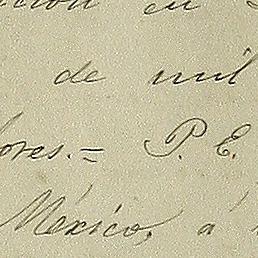 en
de mil
ores.= P. E.
México, á